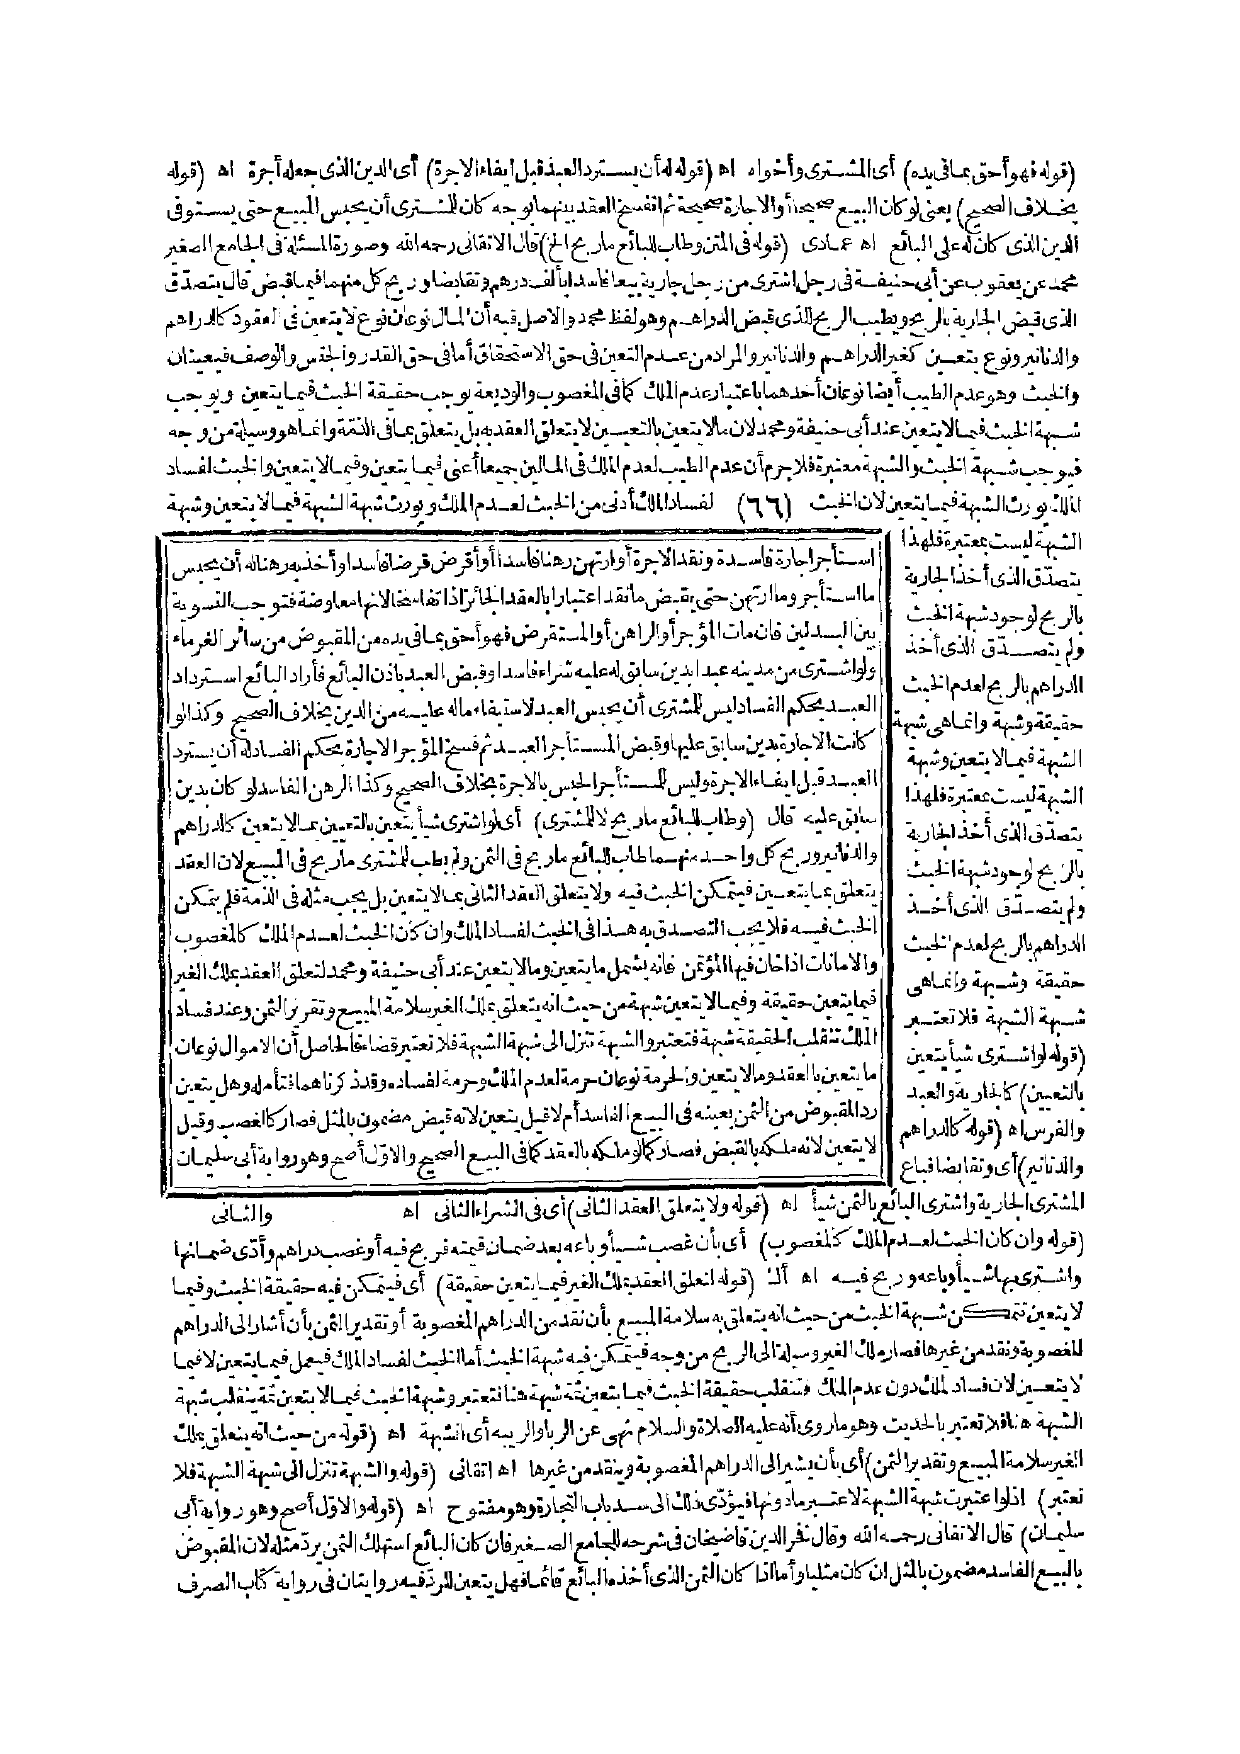 (قوله فهو أحق بما فى يده) أى المشترى وأخواه اه (قوله له أن يسترد العبد قبل ايفاء الاجرة) أى الدين الذى جعله أجرة اه (قوله
بخلاف الصحيح) يعنى لو كان البيع صحيحا أو الاجارة صحيحة ثم انفسخ العقد بينهما بوجه كان للمشترى أن يحبس المبيع حتى يستوفى
الدين الذى كان له على البائع اه عمادى (قوله فى المتن وطاب للبائع ما ربح الخ) قال الاتقانى رحمه الله وصورة المسئلة فى الجامع الصغير
محمد عن يعقوب عن أبى حنيفة فى رجل اشترى من رجل جارية بيعا فاسدا بألف درهم وتقابضا وربح كل منهما فيما قبض قال يتصدق
الذى قبض الجارية بالربح ويطيب الربح للذى قبض الدراهم وهو لفظ محمد والاصل فيه أن المال نوعان نوع لا يتعين فى العقود كالدراهم
والدنانير ونوع يتعين كغير الدراهم والدنانير والمراد من عدم التعين فى حق الاستحقاق أما فى حق القدر والجنس والوصف فيعينان
والخبث وهو عدم الطيب أيضا نوعان أحدهما باعتبار عدم الملك كما فى المغصوب والوديعة يوجب حقيقة الخبث فيما يتعين ويوجب
شبهة الخبث فيما لا يتعين عند أبى حنيفة ومحمد لان ما لا يتعين بالتعيين لا يتعلق العقد به بل يتعلق بما فى الذمة وانما هو وسيلة من وجه
فيوجب شبهة الخبث والشبهة معتبرة فلا جرم أن عدم الطيب لعدم الملك فى المالين جميعا أعنى فيما يتعين وفيما لا يتعين والخبث لفساد
الملك يورث الشبهة فيما يتعين لان الخبث (٦٦) لفساد الملك أدنى من الخبث لعدم الملك ويورث شبهة الشبهة فيما لا يتعين وشبهة
الشبهة ليست بمعتبرة فلهذا
يتصدق الذى أخذ الجارية
بالربح لوجود شبهة الخبث
ولم يتصدق الذى أخذ
الدراهم بالربح لعدم الخبث
حقيقة وشبهة وانما هى شبهة
الشبهة فيما لا يتعين وشبهة
الشبهة ليست بمعتبرة فلهذا
يتصدق الذى أخذ الجارية
بالربح لوجود شبهة الخبث
ولم يتصدق الذى أخذ
الدراهم بالربح لعدم الخبث
حقيقة وشبهة وانما هى
شبهة الشبهة فلا تعتبر
(قوله لو اشترى شيأ يتعين
بالتعيين) كالجارية والعبد
والفرس اه (قوله كالدراهم
والدنانير) أى وتقابضا فباع
استأجر اجارة فاسدة ونقد الاجرة أو ارتهن رهنا فاسدا أو أقرض قرضا فاسدا وأخذ به رهنا له أن يحبس
ما استأجر وما ارتهن حتى يقبض ما نقد اعتبارا بالعقد الجائز اذا تفاسخا لانها معاوضة فتوجب التسوية
بين البدلين فان مات المؤجر أو الراهن أو المستقرض فهو أحق بما فى يده من المقبوض من سائر الغرماء
ولو اشترى من مدينه عبدا بدين سابق له عليه شراء فاسدا وقبض العبد باذن البائع فأراد البائع استرداد
العبد بحكم الفساد ليس للمشترى أن يحبس العبد لاستيفاء ماله عليه من الدين بخلاف الصحيح وكذا لو
كانت الاجارة بدين سابق عليها وقبض المستأجر العبد ثم فسخ المؤجر الاجارة بحكم الفساد له أن يسترد
العبد قبل ايفاء الاجرة وليس للمستأجر الحبس بالاجرة بخلاف الصحيح وكذا الرهن الفاسد لو كان بدين
سابق عليه قال (وطاب للبائع ما ربح لا للمشترى) أى لو اشترى شيأ يتعين بالتعيين بما لا يتعين كالدراهم
والدنانير وربح كل واحد منهما طاب للبائع ما ربح فى الثمن ولم يطب للمشترى ما ربح فى المبيع لان العقد
يتعلق بما يتعين فيتمكن الخبث فيه ولا يتعلق العقد الثانى بما لا يتعين بل يجب مثله فى الذمة فلم يتمكن
الخبث فيه فلا يجب التصدق به هذا فى الخبث لفساد الملك وان كان الخبث لعدم الملك كالمغصوب
والامانات اذا خان فيها المؤتمن فانه يشمل ما يتعين وما لا يتعين عند أبى حنيفة ومحمد لتعلق العقد بملك الغير
فيما يتعين حقيقة وفيما لا يتعين شبهة من حيث انه يتعلق بملك الغير سلامة المبيع وتقرير الثمن وعند فساد
الملك تنقلب الحقيقة شبهة فتعتبر والشبهة تنزل الى شبهة الشبهة فلا تعتبر قضاء فالحاصل أن الاموال نوعان
ما يتعين بالعقد وما لا يتعين والحرمة نوعان حرمة لعدم الملك وحرمة لفساده وقد ذكرناهما فتأمله وهل يتعين
رد المقبوض من الثمن بعينه فى البيع الفاسد أم لا قيل يتعين لانه قبض مضمون بالمثل فصار كالغصب وقيل
لا يتعين لانه ملكه بالقبض فصار كما لو ملكه بالعقد كما فى البيع الصحيح والاول أصح وهو رواية أبى سليمان
المشترى الجارية واشترى البائع بالثمن شيأ اه (قوله ولا يتعلق العقد الثانى) أى فى الشراء الثانى اه والثانى
(قوله وان كان الخبث لعدم الملك كالمغصوب) أى بأن غصب شيأ وباعه بعد ضمان قيمته فربح فيه أو غصب دراهم وأدى ضمانها
واشترى بها شيأ وباعه وربح فيه اه (قوله لتعلق العقد بملك الغير فيما يتعين حقيقة) أى فيتمكن فيه حقيقة الخبث وفيما
لا يتعين تتمكن شبهة الخبث من حيث انه يتعلق به سلامة المبيع بأن نقد من الدراهم المغصوبة أو تقدير الثمن بأن أشار الى الدراهم
المغصوبة ونقد من غيرها فصار ملك الغير وسيلة الى الربح من وجه فيتمكن فيه شبهة الخبث أما الخبث لفساد الملك فيعمل فيما يتعين لا فيما
لا يتعين لان فساد الملك دون عدم الملك فتنقلب حقيقة الخبث فيما يتعين ثمة شبهة هنا فتعتبر وشبهة الخبث فيما لا يتعين ثمة ينقلب شبهة
الشبهة هنا فلا تعتبر بالحديث وهو ما روى أنه عليه الصلاة والسلام نهى عن الربا والريبة أى الشبهة اه (قوله من حيث انه يتعلق بملك
الغير سلامة المبيع وتقدير الثمن) أى بأن يشير الى الدراهم المغصوبة وينقد من غيرها اه اتقانى (قوله والشبهة تنزل الى شبهة الشبهة فلا
تعتبر) اذ لو اعتبرت شبهة الشبهة لاعتبر ما دونها فيؤدى ذلك الى سد باب التجارة وهو مفتوح اه (قوله والاول أصح وهو رواية أبى
سليمان) قال الاتقانى رحمه الله وقال فخر الدين قاضيخان فى شرحه للجامع الصغير فان كان البائع استهلك الثمن يرد مثله لان المقبوض
بالبيع الفاسد مضمون بالمثل ان كان مثليا وأما اذا كان الثمن الذى أخذه البائع قائما فهل يتعين للرد فيه روايتان فى رواية كتاب الصرف